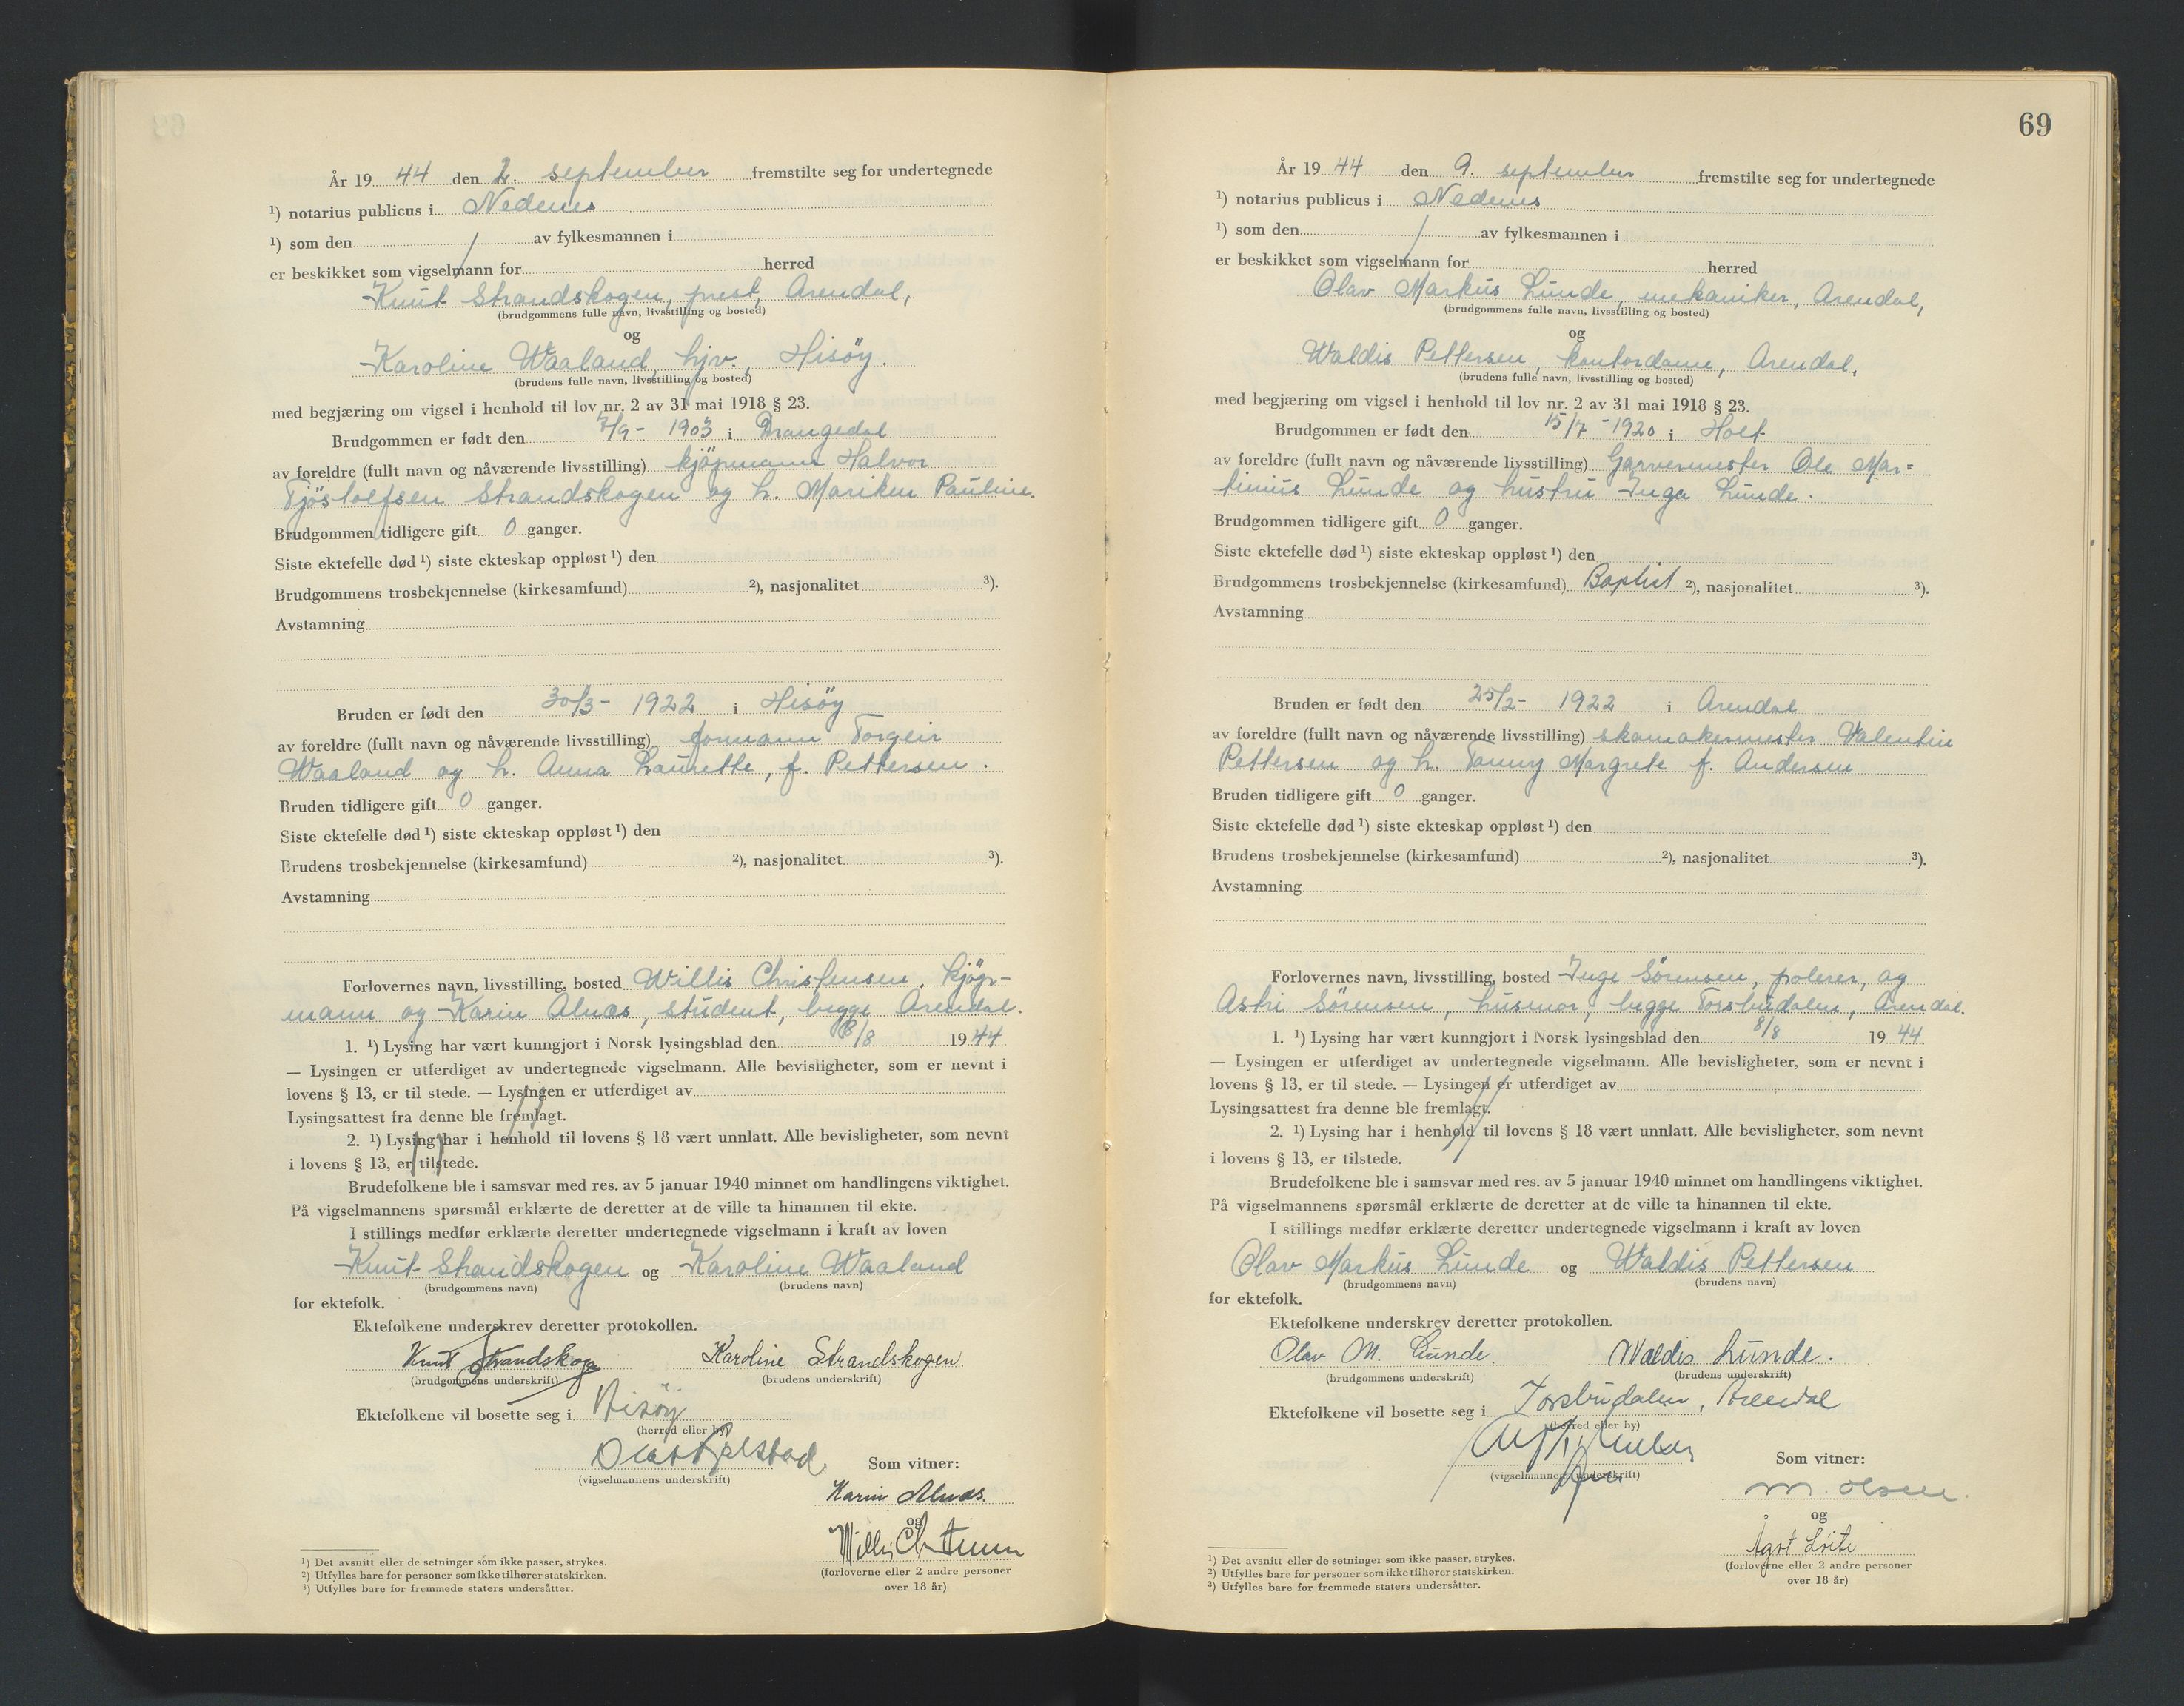 År 19 44 den 2. september fremstilte seg for undertegnede
¹) notarius publicus i Nedenes
¹) som den av fylkesmannen i
er beskikket som vigselmann for herred
Knut Strandskogen, prest, Arendal,
(brudgommens fulle navn, livsstilling og bosted)
og
Karoline Waaland, hjv., Hisöy.
(brudens fulle navn, livsstilling og bosted)
med begjæring om vigsel i henhold til lov nr. 2 av 31 mai 1918 § 23.
Brudgommen er født den 7/9 - 1903 i Drangedal
av foreldre (fullt navn og nåværende livsstilling) kjöpmann Halvor
Tjöstolfsen Strandskogen og h. Mariken Pauline.
Brudgommen tidligere gift 0 ganger.
Siste ektefelle død ¹) siste ekteskap oppløst ¹) den
Brudgommens trosbekjennelse (kirkesamfund) ²), nasjonalitet ³).
Avstamning
Bruden er født den 30/3 - 1922 i Hisöy
av foreldre (fullt navn og nåværende livsstilling) formann Torgeir
Waaland og h. Anna Laurette, f. Pettersen.
Bruden tidligere gift 0 ganger.
Siste ektefelle død ¹) siste ekteskap oppløst ¹) den
Brudens trosbekjennelse (kirkesamfund) ²), nasjonalitet ³).
Avstamning
Forlovernes navn, livsstilling, bosted Willis Christensen, kjöp-
mann og Karin Alnæs, student, begge Arendal.
1. ¹) Lysing har vært kunngjort i Norsk lysingsblad den 8/8 19 44
— Lysingen er utferdiget av undertegnede vigselmann. Alle bevisligheter, som er nevnt i
lovens § 13, er til stede. — Lysingen er utferdiget av
Lysingsattest fra denne ble fremlagt.
2. ¹) Lysing har i henhold til lovens § 18 vært unnlatt. Alle bevisligheter, som nevnt
i lovens § 13, er tilstede.
Brudefolkene ble i samsvar med res. av 5 januar 1940 minnet om handlingens viktighet.
På vigselmannens spørsmål erklærte de deretter at de ville ta hinannen til ekte.
I stillings medfør erklærte deretter undertegnede vigselmann i kraft av loven
Knut Strandskogen og Karoline Waaland
(brudgommens navn) (brudens navn)
for ektefolk.
Ektefolkene underskrev deretter protokollen.
Knut Strandskogen Karoline Strandskogen
(brudgommens underskrift) (brudens underskrift)
Ektefolkene vil bosette seg i Hisöy
(herred eller by)
(vigselmannens underskrift)
Som vitner:
Karin Alnæs.
og
Willis Christensen
(forloverne eller 2 andre personer
over 18 år)
¹) Det avsnitt eller de setninger som ikke passer, strykes.
²) Utfylles bare for personer som ikke tilhører statskirken.
³) Utfylles bare for fremmede staters undersåtter.
69
År 19 44 den 9. september fremstilte seg for undertegnede
¹) notarius publicus i Nedenes
¹) som den av fylkesmannen i
er beskikket som vigselmann for herred
Olav Markus Lunde, mekaniker, Arendal,
(brudgommens fulle navn, livsstilling og bosted)
og
Waldis Pettersen, kontordame, Arendal,
(brudens fulle navn, livsstilling og bosted)
med begjæring om vigsel i henhold til lov nr. 2 av 31 mai 1918 § 23.
Brudgommen er født den 15/7 - 1920 i Holt
av foreldre (fullt navn og nåværende livsstilling) Garvermester Ole Mar=
tinius Lunde og hustru Inga Lunde.
Brudgommen tidligere gift 0 ganger.
Siste ektefelle død ¹) siste ekteskap oppløst ¹) den
Brudgommens trosbekjennelse (kirkesamfund) Baptist ²), nasjonalitet ³).
Avstamning
Bruden er født den 25/2 - 1922 i Arendal
av foreldre (fullt navn og nåværende livsstilling) skomakermester Valentin
Pettersen og h. Fanny Margrete f. Andersen
Bruden tidligere gift 0 ganger.
Siste ektefelle død ¹) siste ekteskap oppløst ¹) den
Brudens trosbekjennelse (kirkesamfund) ²), nasjonalitet ³).
Avstamning
Forlovernes navn, livsstilling, bosted Inge Sörensen, polerer, og
Astri Sörensen, husmor, begge Torsbudalen, Arendal.
1. ¹) Lysing har vært kunngjort i Norsk lysingsblad den 8/8 19 44
— Lysingen er utferdiget av undertegnede vigselmann. Alle bevisligheter, som er nevnt i
lovens § 13, er til stede. — Lysingen er utferdiget av
Lysingsattest fra denne ble fremlagt.
2. ¹) Lysing har i henhold til lovens § 18 vært unnlatt. Alle bevisligheter, som nevnt
i lovens § 13, er tilstede.
Brudefolkene ble i samsvar med res. av 5 januar 1940 minnet om handlingens viktighet.
På vigselmannens spørsmål erklærte de deretter at de ville ta hinannen til ekte.
I stillings medfør erklærte deretter undertegnede vigselmann i kraft av loven
Olav Markus Lunde og Waldis Pettersen
(brudgommens navn) (brudens navn)
for ektefolk.
Ektefolkene underskrev deretter protokollen.
Olav M. Lunde. Waldis Lunde.
(brudgommens underskrift) (brudens underskrift)
Ektefolkene vil bosette seg i Torsbudalen, Arendal
(herred eller by)
(vigselmannens underskrift)
Som vitner:
M. Olsen.
og
Ågot Löite
(forloverne eller 2 andre personer
over 18 år)
¹) Det avsnitt eller de setninger som ikke passer, strykes.
²) Utfylles bare for personer som ikke tilhører statskirken.
³) Utfylles bare for fremmede staters undersåtter.